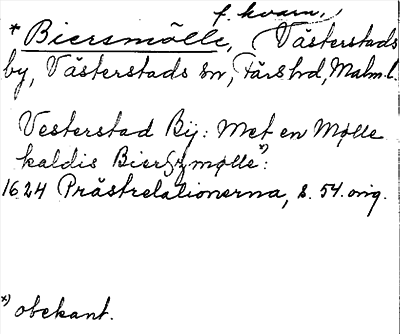 f. kvarn,
* Biersmölle, Västerstads
by, Västerstads sn, Färs hd, Malm. l.
Vesterstad By: Met en Mølle
kaldis Biersmølle x):
1624 Prästrelationerna, s. 54. orig.
x) obekant.